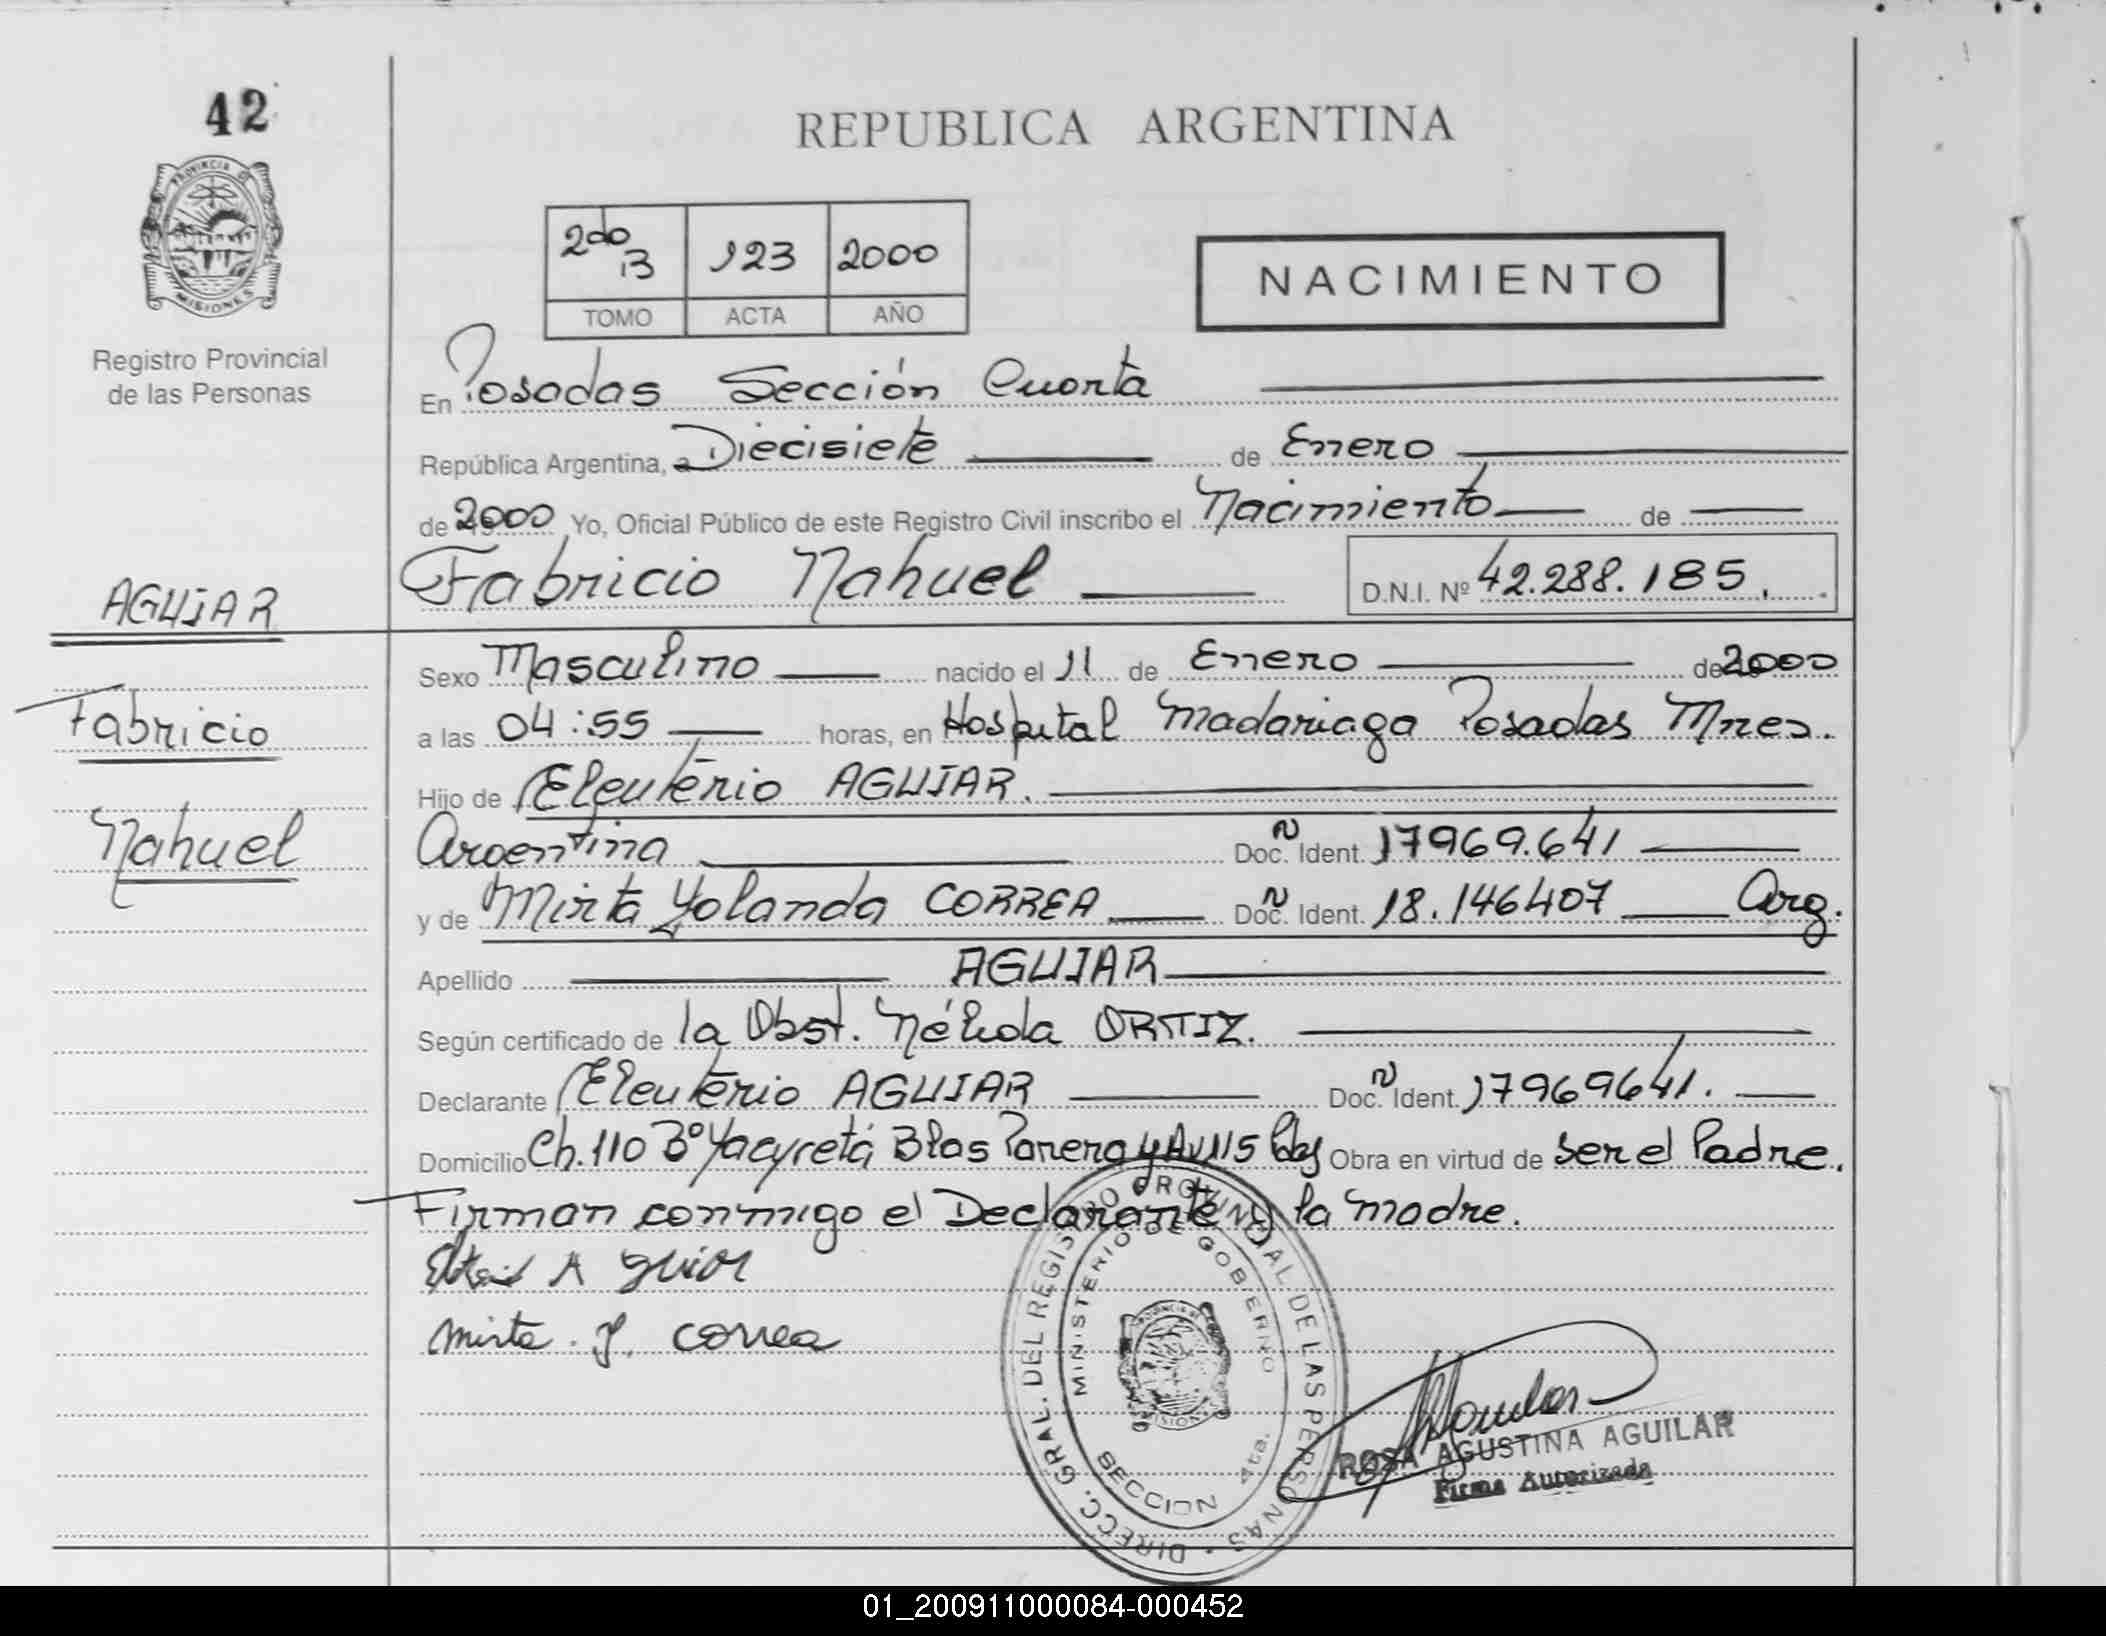 42
PROVINCIA DE
MISIONES
Registro Provincial
de las Personas
REPUBLICA ARGENTINA
2do 13 123 2000
TOMO ACTA AÑO
NACIMIENTO
En Posadas Sección Cuarta
República Argentina, a Diecisiete de Enero
de 2000 Yo, Oficial Público de este Registro Civil inscribo el Nacimiento de
Fabricio Nahuel D.N.I. Nº 42.288.185.
AGUIAR
Fabricio
Nahuel
Sexo Masculino nacido el 11 de Enero de 2000
a las 04:55 horas, en Hospital Madariaga Posadas Mnes.
Hijo de Eleuterio AGUIAR.
Argentina Doc. Ident. 17969.641
y de Mirta Yolanda CORREA Doc. Ident. 18.146407 Arg.
Apellido AGUIAR
Según certificado de la Obst. Nélida ORTIZ.
Declarante Eleuterio AGUIAR Doc. Ident. 17969641.
Domicilio Ch. 110 Bº Yacyretá Blas Parera y Av 115 Pdas Obra en virtud de ser el Padre.
Firman conmigo el Declarante y la madre.
A guiar
Mirta . Y. Correa
DIRECC. GRAL. DEL REGISTRO PROVINCIAL DE LAS PERSONAS
MINISTERIO DE GOBIERNO
SECCION 4ta.
ROSA AGUSTINA AGUILAR
Firma Autorizada
01_200911000084-000452